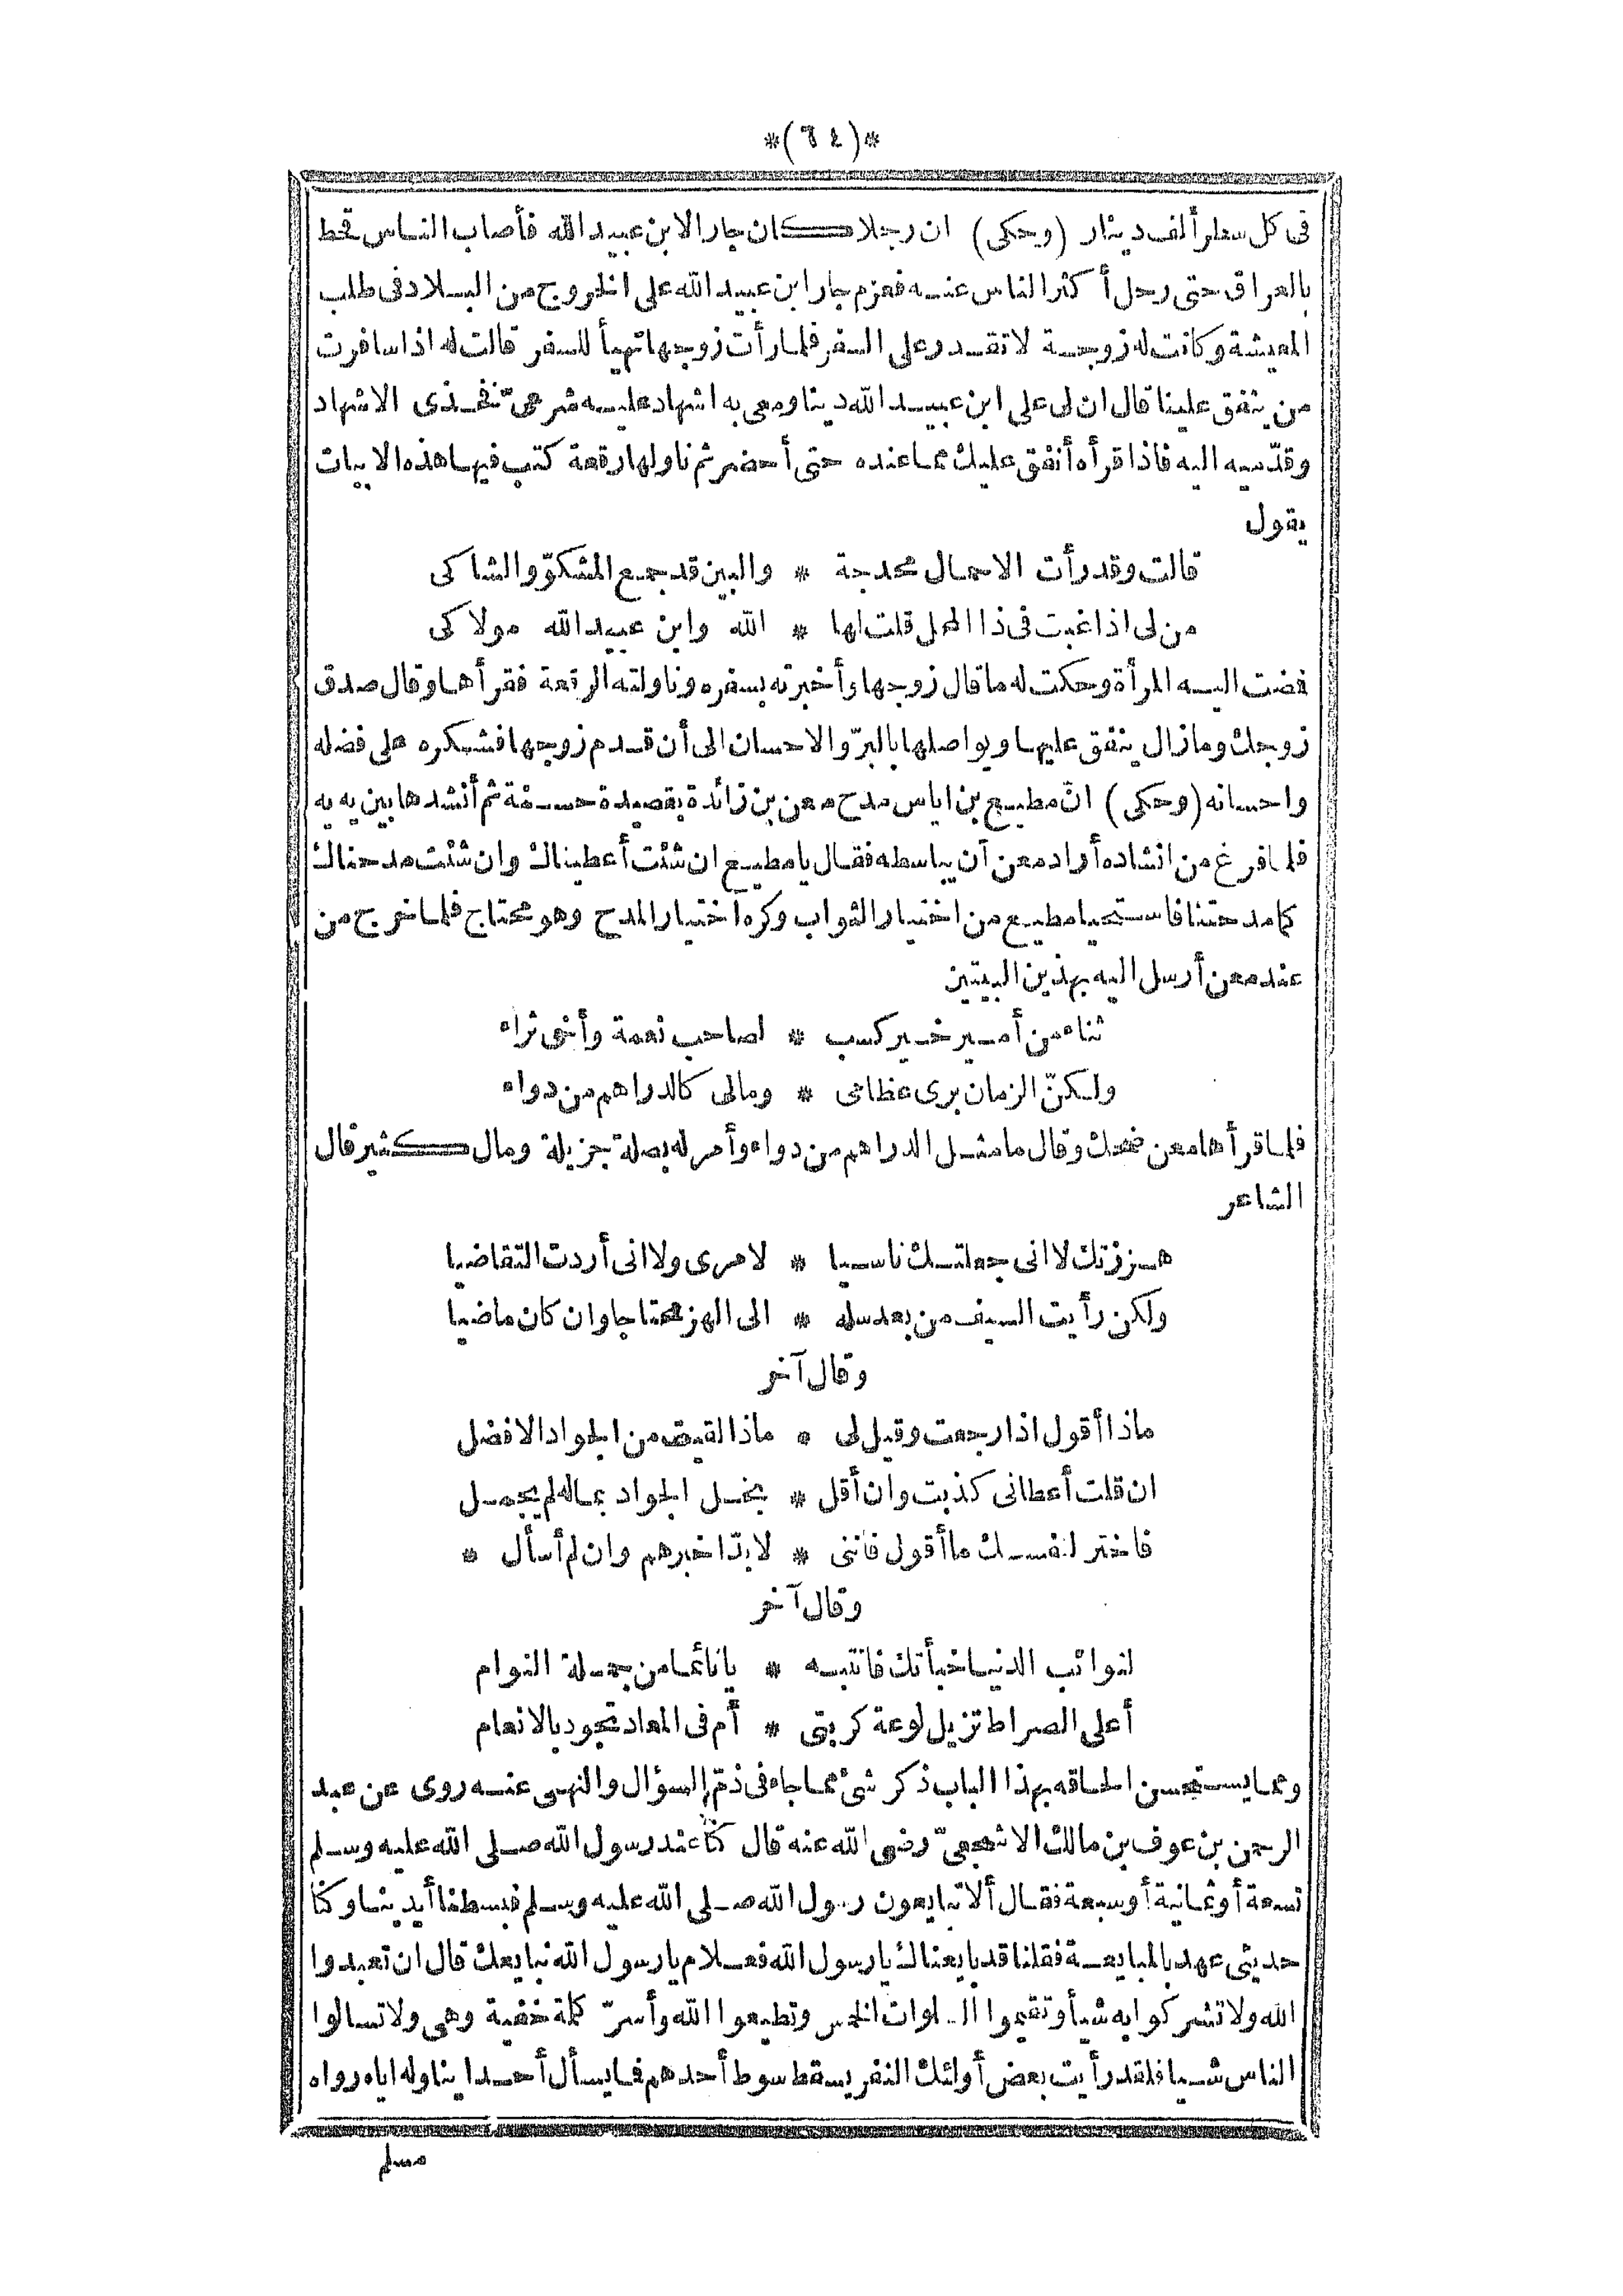 *(٦٤)*
فى كل سطر ألف دينار (وحكى) ان رجلا كان جارا لابن عبيد الله فأصاب الناس قحط
بالعراق حتى رحل أكثر الناس عنه فعزم جار ابن عبيد الله على الخروج من البلاد فى طلب
المعيشة وكانت له زوجة لا تقدر على السفر فلما رأت زوجها تهيأ للسفر قالت له اذا سافرت
من ينفق علينا قال ان لى على ابن عبيد الله دينا ومعى به اشهاد عليه شرعىّ نفخذى الاشهاد
وقدّميه اليه فاذا قرأه أنفق عليك مما عنده حتى أحضر ثم ناولها رقعة كتب فيها هذه الابيات
يقول
قالت وقد رأت الاحمال محدجة * والبين قد جمع المشكوّ والشاكى
من لى اذا غبت فى ذا المحل قلت لها * الله وابن عبيد الله مولاكى
فضت اليه المرأة وحكت له ما قال زوجها وأخبرته بسفره وناولته الرقعة فقرأها وقال صدق
زوجك وما زال ينفق عليها ويواصلها بالبرّ والاحسان الى أن قدم زوجها فشكره على فضله
واحسانه (وحكى) انّ مطيع بن اياس مدح معن بن زائدة بقصيدة حسنة ثم أنشدها بين يديه
فلما فرغ من انشاده أراد معن أن يباسطه فقال يا مطيع ان شئت أعطيناك وان شئت مدحناك
كما مدحتنا فاستحيا مطيع من اختيار الثواب وكره اختيار المدح وهو محتاج فلما خرج من
عند معن أرسل اليه بهذين البيتين
ثناء من أمير خير كسب * لصاحب نعمة وأخى ثراء
ولكنّ الزمان برى عظامى * ومالى كالدراهم من دواء
فلما قرأها معن ضحك وقال ما مثل الدراهم من دواء وأمر له بصلة جزيلة ومال كثير قال
الشاعر
هززتك لا انى جعلتك ناسيا * لامرى ولا انى أردت التقاضيا
ولكن رأيت السيف من بعد سله * الى الهز محتاجا وان كان ماضيا
وقال آخر
ماذا أقول اذا رجعت وقيل لى * ماذا لقيت من الجواد الافضل
ان قلت أعطانى كذبت وان أقل * بخل الجواد بماله لم يجمل
فاختر لنفسك ما أقول فاننى * لا بدّ اخبرهم وان لم أسأل *
وقال آخر
لنوائب الدنيا خبأتك فانتبه * يا نائما من جملة النوام
أعلى الصراط تزيل لوعة كربتى * أم فى المعاد تجود بالانعام
ومما يستحسن الحاقه بهذا الباب ذكر شئ مما جاء فى ذمّ السؤال والنهى عنه روى عن عبد
الرحمن بن عوف بن مالك الاشجعىّ رضى الله عنه قال كنا عند رسول الله صلى الله عليه وسلم
تسعة أو ثمانية أو سبعة فقال ألا تبايعون رسول الله صلى الله عليه وسلم فبسطنا أيدينا وكنا
حديثى عهد بالمبايعة فقلنا قد بايعناك يا رسول الله فعلام يا رسول الله نبايعك قال ان تعبدوا
الله ولا تشركوا به شيأ وتقيموا الصلوات الخمس وتطيعوا الله وأسرّ كلمة خفية وهى ولا تسالوا
الناس شيا فلقد رأيت بعض أولئك النفر يسقط سوط أحدهم فما يسأل أحدا يناوله اياه رواه
مسلم